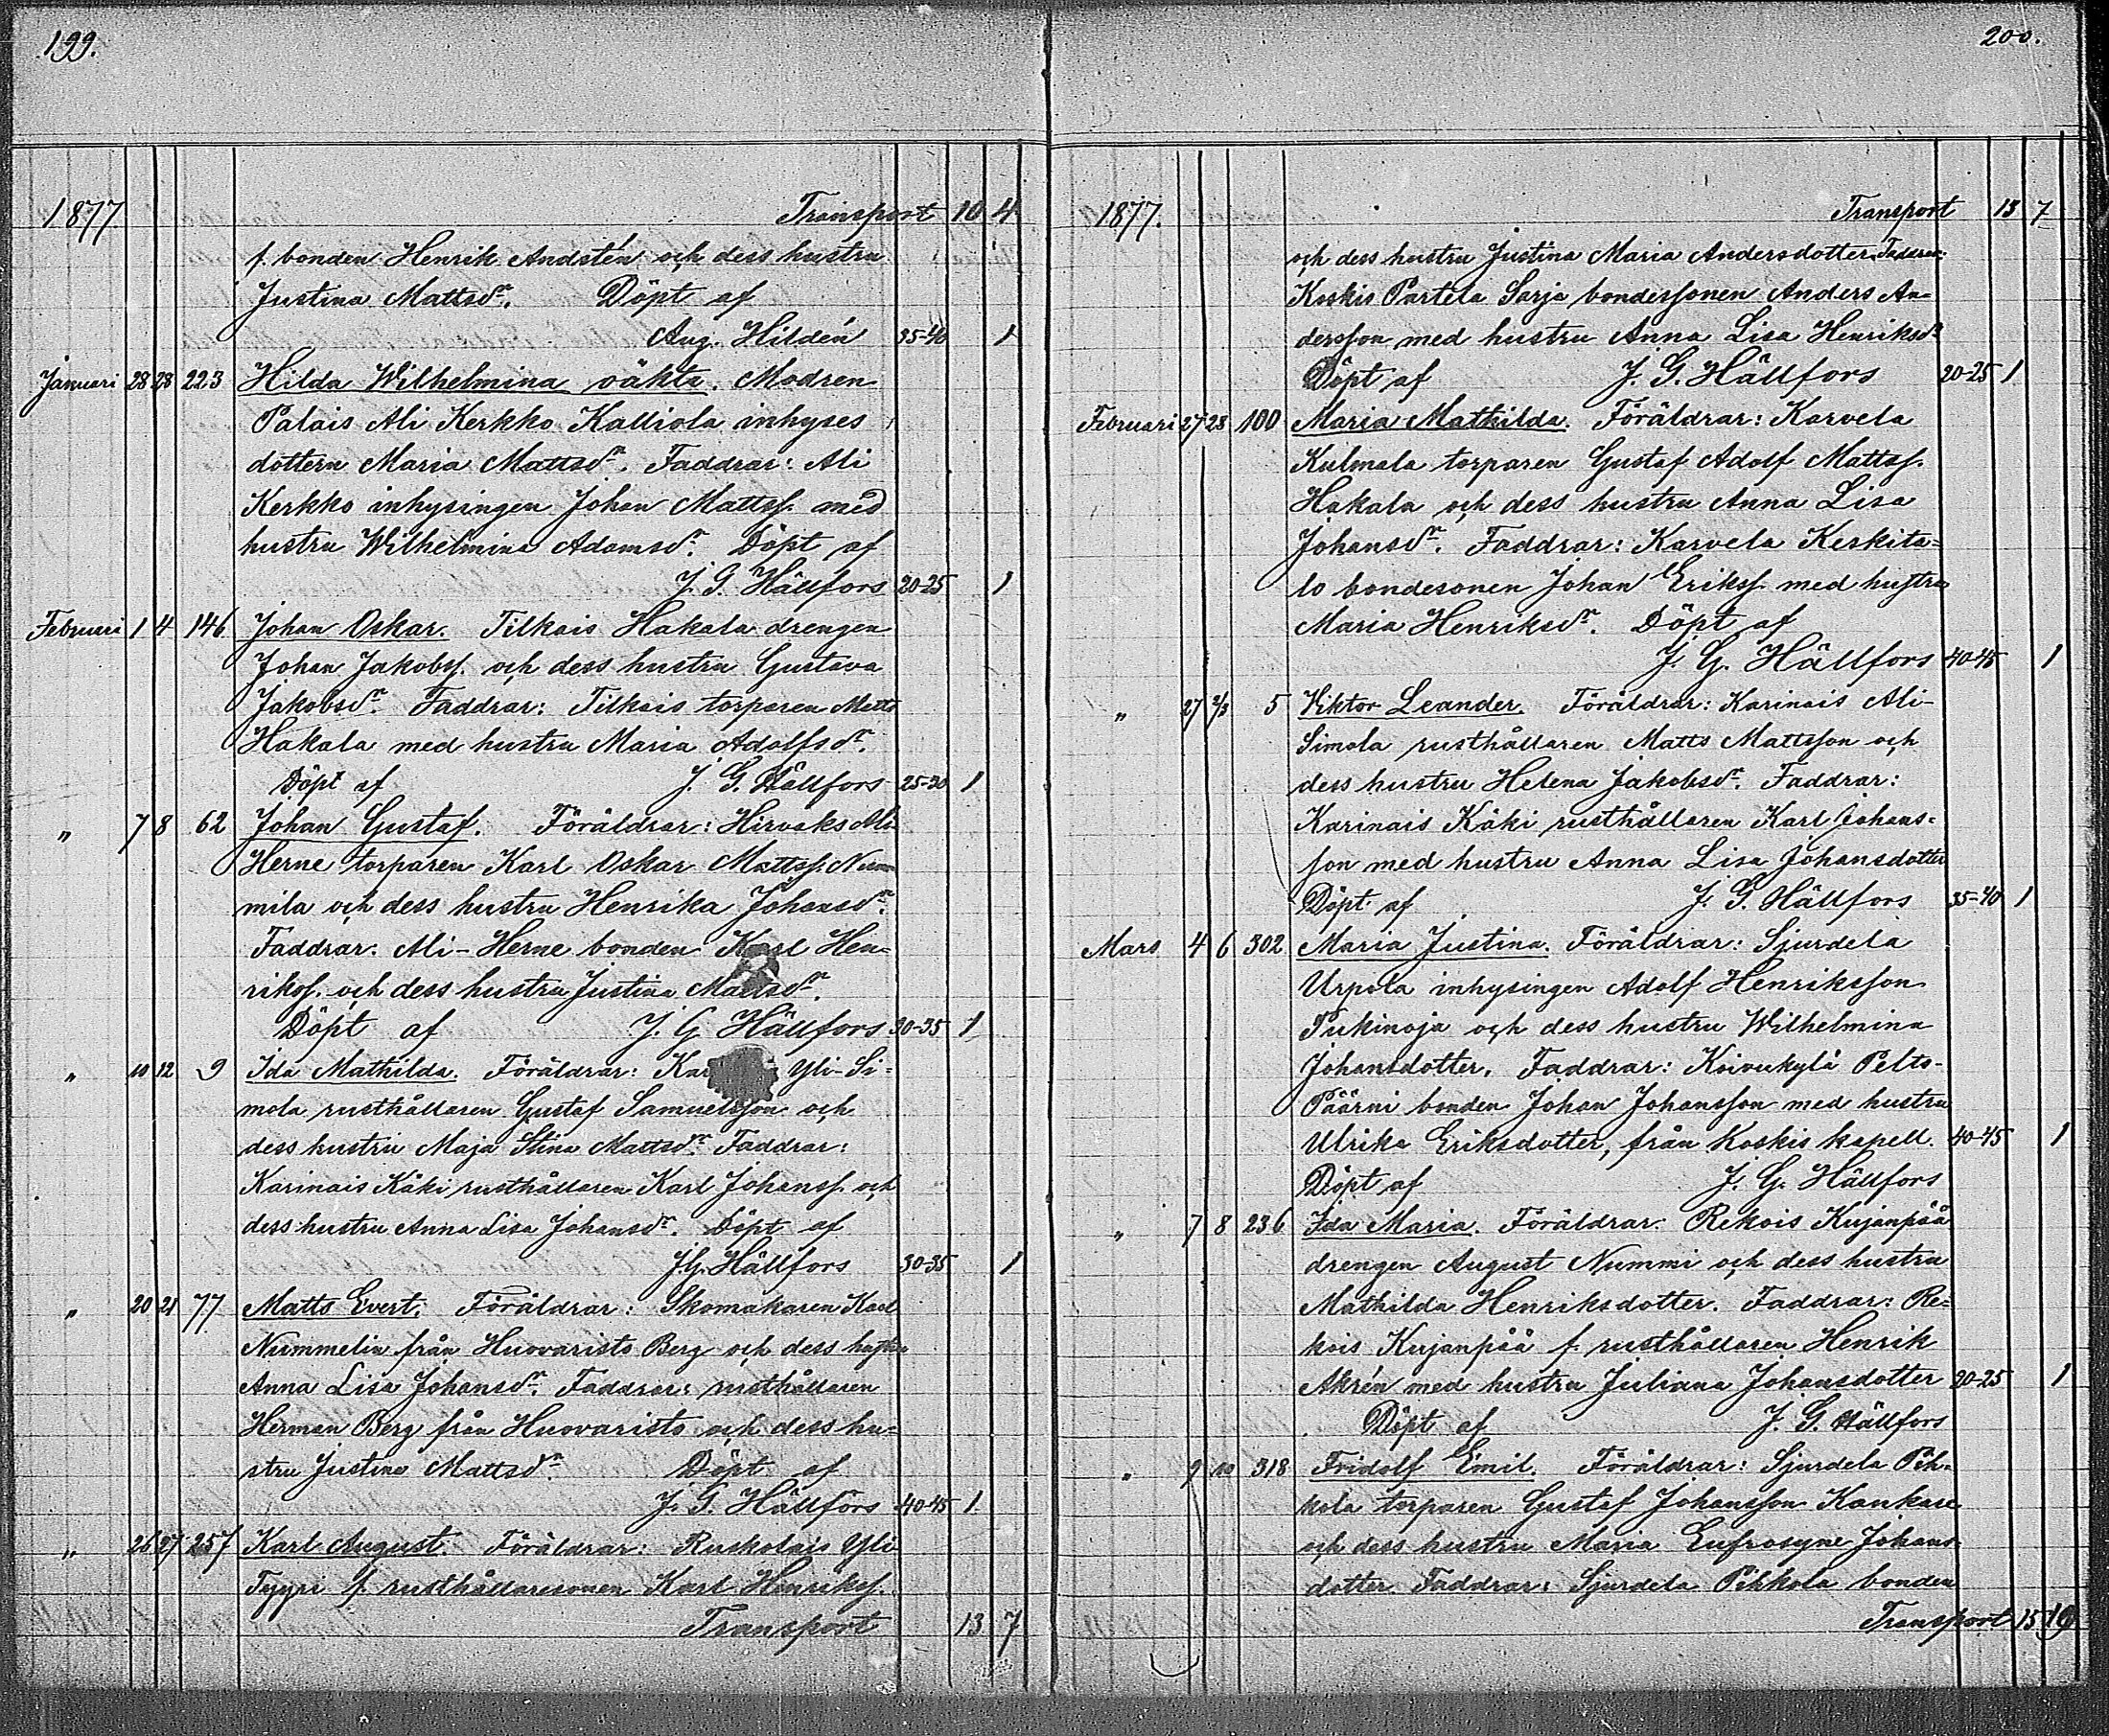 199.
1877 Transport 10 4
f. bonden Henrik Andstén och dess hustru
Justina Mattsdr. Döpt af
Aug. Hildén 35-40 1
Januari 28 28 223 Hilda Wilhelmina oäkta. Modren
Palais Ali Kerkko Kalliola inhyses
dottern Maria Mattsdr. Faddrar: Ali
Kerkko inhysingen Johan Mattss. med
hustru Wilhelmina Adamsdr. Döpt af
J. G. Hällfors 20-25 1
Februari 1 4 146 Johan Oskar. Tilkais Hakala drengen
Johan Jakobss. och dess hustru Gustava
Jakobsdr. Faddrar: Tilkais torparen Matts
Hakala med hustru Maria Adolfsdr.
Döpt af J. G. Hällfors 25-30 1
" 7 8 62 Johan Gustaf. Föräldrar: Hirvaks Ali-
Herne torparen Karl Oskar Mattss. Num
mila och dess hustru Henrika Johansdr.
Faddrar: Ali-Herne bonden Karl Hen-
rikss. och dess hustru Justina Mattsdr.
Döpt af J. G. Hällfors 30-35 1
" 10 12 9 Ida Mathilda. Föräldrar: Kar Yli-Si-
mola rusthållaren Gustaf Samuelsson och
dess hustru Maja Stina Mattsdr. Faddrar:
Karinais Käki rusthållaren Karl Johanss. och
dess hustru Anna Lisa Johansdr. Döpt af
J. G. Hällfors 30-35 1
" 20 21 77 Matts Evert. Föräldrar: Skomakaren Karl
Nummelin från Huovaristo Berg och dess hustru
Anna Lisa Johansdr. Faddrar: rusthållaren
Herman Berg från Huovaristo och dess hu-
stru Justina Mattsdr. Döpt af
J. G. Hällfors 40-45 1
" 26 27 257 Karl August. Föräldrar: Ruskolais Yli
Tyyri f. rusthållaresonen Karl Henrikss.
Transport 13 7
200.
1877. Transport 13 7
och dess hustru Justina Maria Andersdotter. Faddrar:
Koskis Partela Sarja bondessonen Anders An-
dersson med hustru Anna Lisa Henriksdr
Döpt af J. G. Hällfors 20-25 1
Februari 27 28 100 Maria Mathilda. Föräldrar: Karvela
Kulmala torparen Gustaf Adolf Mattss.
Hakala och dess hustru Anna Lisa
Johansdr. Faddrar: Karvela Keskita-
lo bondesonen Johan Erikss. med hustru
Maria Henriksdr. Döpt af
J. G. Hällfors 40-45 1
" 27 2/3 5 Viktor Leander. Föräldrar: Karinais Ali-
Simola rusthållaren Matts Mattsson och
dess hustru Helena Jakobsdr. Faddrar:
Karinais Käki rusthållaren Karl Johans-
son med hustru Anna Lisa Johansdotter
Döpt af J. G. Hällfors 35-40 1
Mars 4 6 302 Maria Justina. Föräldrar: Sjurdela
Urpola inhysingen Adolf Henriksson
Pukinoja och dess hustru Wilhelmina
Johansdotter. Faddrar: Koivukylä Pelto-
Päärni bonden Johan Johansson med hustru
Ulrika Eriksdotter, från Koskis kapell. 40-45 1
Döpt af J. G. Hällfors
" 7 8 236 Ida Maria. Föräldrar: Rekois Kujanpää
drengen August Nummi och dess hustru
Mathilda Henriksdotter. Faddrar: Re-
kois Kujanpää f. rusthållaren Henrik
Akrén med hustru Juliana Johansdotter 20-25 1
Döpt af J. G. Hällfors
" 9 10 318 Fridolf Emil. Föräldrar: Sjurdela Pih-
kola torparen Gustaf Johansson Kankare
och dess hustru Maria Eufrosyne Johans-
dotter Faddrar: Sjurdela Pihkola bonden
Transport 15 10